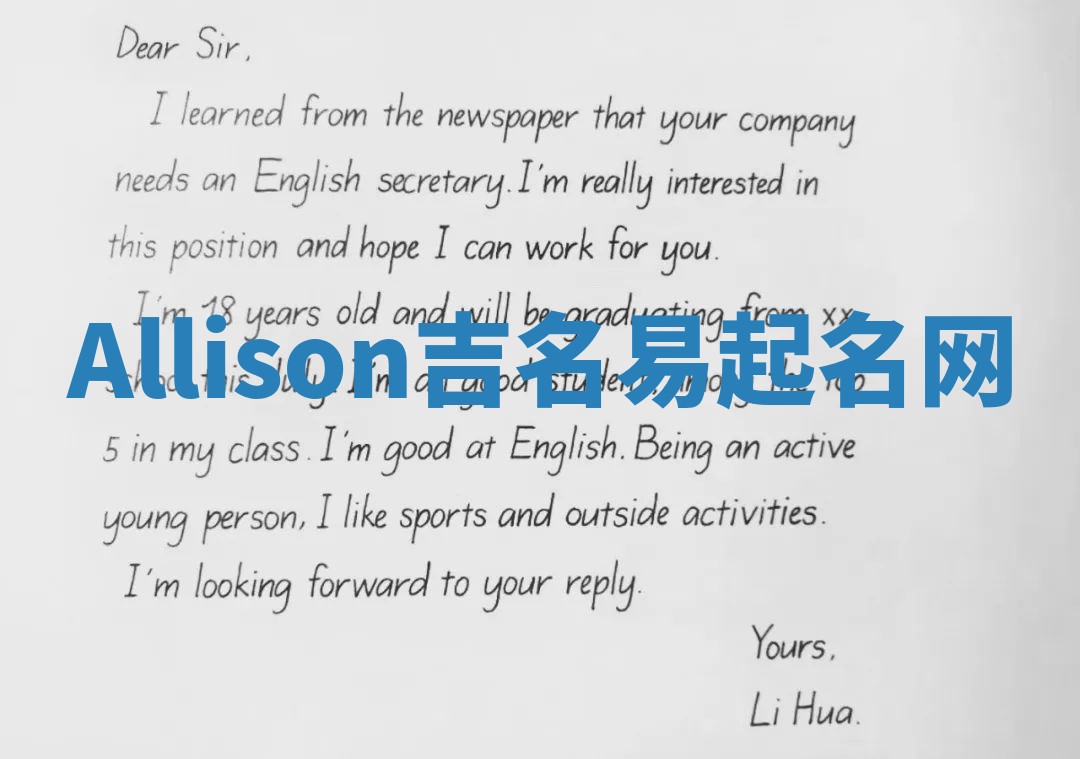 Dear Sir,
I learned from the newspaper that your company
needs an English secretary. I'm really interested in
this position and hope I can work for you.
I'm 18 years old and will be graduating from xx
Allison吉名易起名网
school this July. I'm a good student, among the top
5 in my class. I'm good at English. Being an active
young person, I like sports and outside activities.
I'm looking forward to your reply.
Yours,
Li Hua.